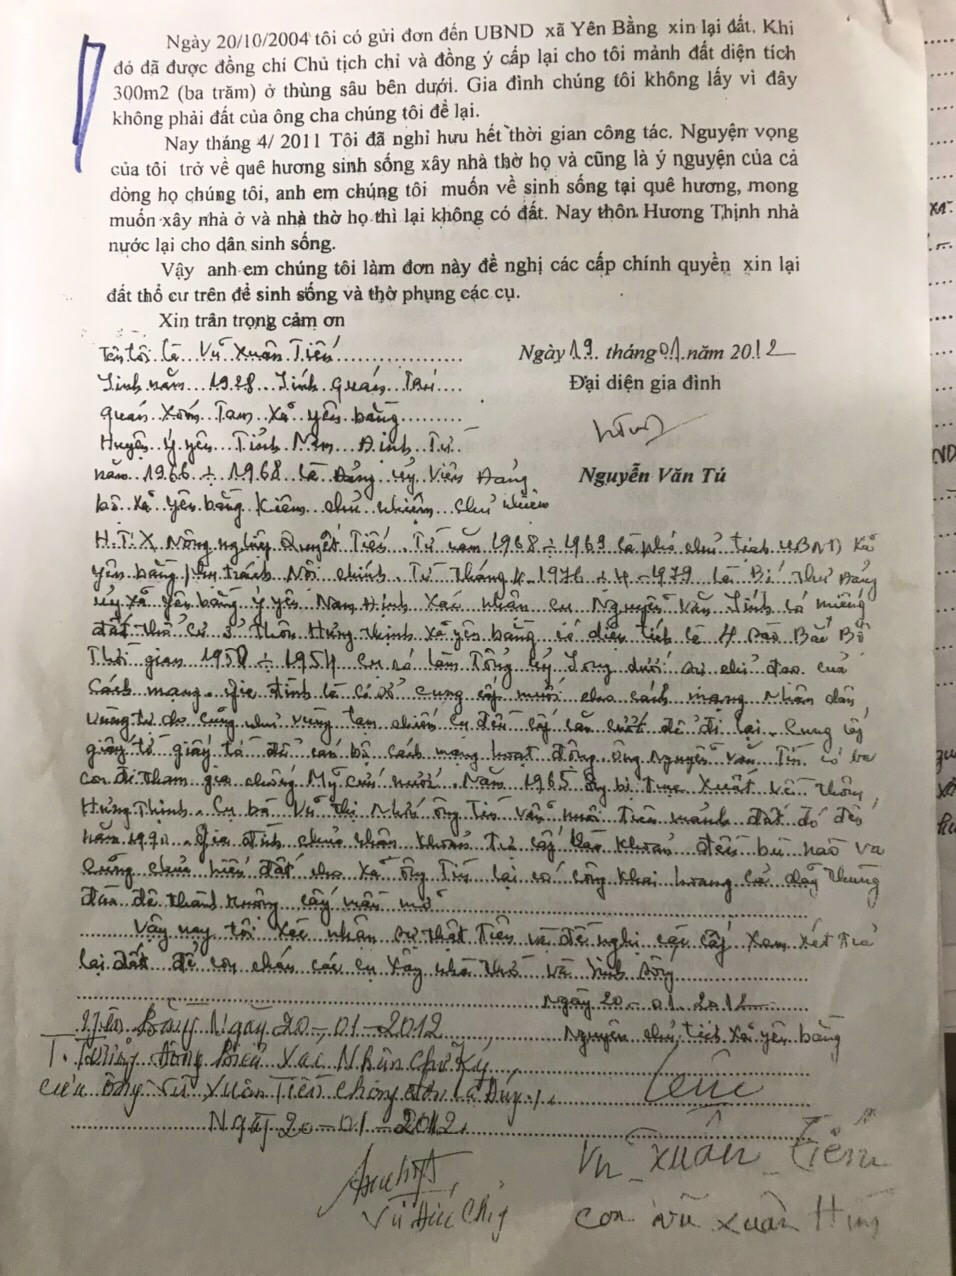 Ngày 20/10/2004 tôi có gửi đơn đến UBND xã Yên Bằng xin lại đất. Khi
đó đã được đồng chí Chủ tịch chỉ và đồng ý cấp lại cho tôi mảnh đất diện tích
300m2 (ba trăm) ở thùng sâu bên dưới. Gia đình chúng tôi không lấy vì đây
không phải đất của ông cha chúng tôi để lại.
Nay tháng 4/ 2011 Tôi đã nghỉ hưu hết thời gian công tác. Nguyện vọng
của tôi trở về quê hương sinh sống xây nhà thờ họ và cũng là ý nguyện của cả
dòng họ chúng tôi, anh em chúng tôi muốn về sinh sống tại quê hương, mong
muốn xây nhà ở và nhà thờ họ thì lại không có đất. Nay thôn Hương Thịnh nhà
nước lại cho dân sinh sống.
Vậy anh em chúng tôi làm đơn này đề nghị các cấp chính quyền xin lại
đất thổ cư trên để sinh sống và thờ phụng các cụ.
Xin trân trọng cảm ơn
Ngày 19. tháng 01. năm 2012
Đại diện gia đình
Nguyễn Văn Tú
Tên tôi là Vũ Xuân Tiến
Sinh năm 1928 Sinh quán Trú
quán Xóm Tam Xã yên bằng
Huyện ý yên Tỉnh Nam Định Từ
năm 1966 ÷ 1968 là Đảng ủy Viên Đảng
bộ xã yên bằng kiêm chủ nhiệm
H.T.X Nông nghiệp Quyết Tiến Từ năm 1968 ÷ 1969 là phó chủ tịch UBND xã
yên bằng phụ trách Nội chính Từ Tháng 4-1976 ÷ 4-1979 là Bí Thư Đảng
ủy xã yên bằng ý yên Nam Định Xác nhận cụ Nguyễn Văn có miếng
đất thổ cư ở thôn Hưng Thịnh xã yên bằng có diện tích là 4 sào Bắc Bộ
Thời gian ÷ 1954 cụ có làm Tổng ủy dưới sự chỉ đạo của
Cách mạng gia đình là cơ sở cung cấp muối cho cách mạng Nhân dân
vùng tự do cũng như vùng tạm chiến cụ đều cấp căn cước để đi lại cung cấp
giấy tờ để cán bộ cách mạng hoạt động ông Nguyễn Văn có ba
con đi tham gia chống Mỹ cứu nước Năm 1965 bị Trục Xuất về Thôn
Hưng Thịnh Cụ bà Vũ Thị ông vẫn trên mảnh đất đó đến
năm Gia đình chưa nhận khoản khoản đền bù nào và
cũng chưa hiến đất cho xã ông lại có công khai hoang cả dãy thùng
đào để thành ruộng cấy
Vậy nay tôi xác nhận sự thật Trên và đề nghị các cấp Xem xét trả
lại đất để con cháu các cụ xây nhà thờ và sinh sống
Ngày 20-01-2012
Nguyên chủ tịch xã yên bằng
Yên Bằng Ngày 20-01-2012
T. Trưởng Xác Nhận Chữ Ký
của ông Vũ Xuân Tiến là Đúng
Ngày 20-01-2012
Vũ Xuân Tiến
con Vũ Xuân
Vũ Đức